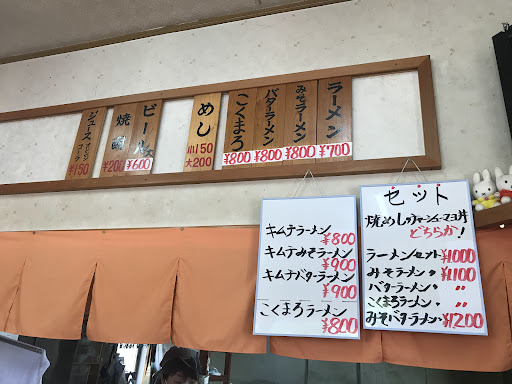 ラーメン
¥700
みそラーメン
¥800
バターラーメン
¥800
こくまろ
¥800
めし
小150
大200
ビール
¥600
焼酎
¥200
ジュース オレンジ
コーラ
¥150
キムチラーメン
¥800
キムチみそラーメン
¥900
キムチバターラーメン
¥900
こくまろラーメン
¥800
セット
焼めし チャーシューマヨ丼
どちらか!
ラーメンセット ¥1000
みそラーメン 〃 ¥1100
バターラーメン 〃 〃
こくまろラーメン 〃 〃
みそバタラーメン 〃 ¥1200